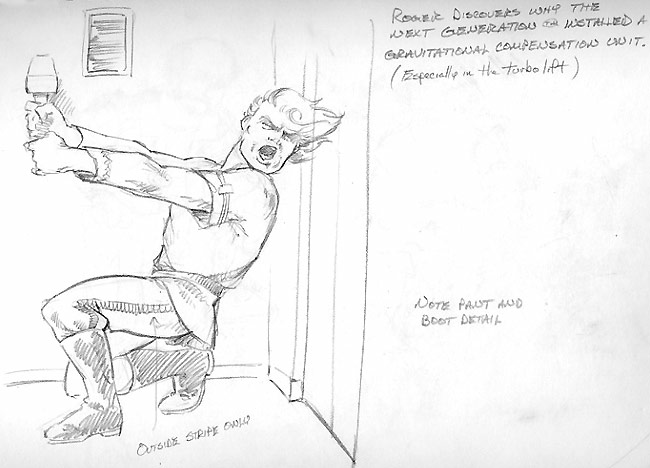 ROGER DISCOVERS WHY THE
NEXT GENERATION INSTALLED A
GRAVITATIONAL COMPENSATION UNIT.
(Especially in the turbolift)
NOTE PANT AND
BOOT DETAIL
OUTSIDE STRIPE ONLY